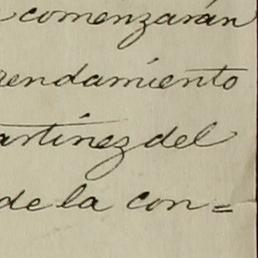 comenzarán
rendamiento
artinez del
de la con=